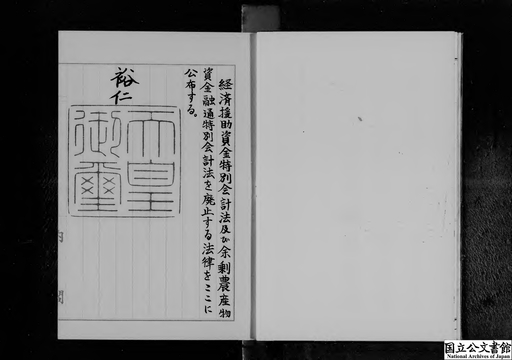 経済援助資金特別会計法及び余剰農産物
資金融通特別会計法を廃止する法律をここに
公布する。
裕仁
天皇
御璽
内
閣
国立公文書館
National Archives of Japan